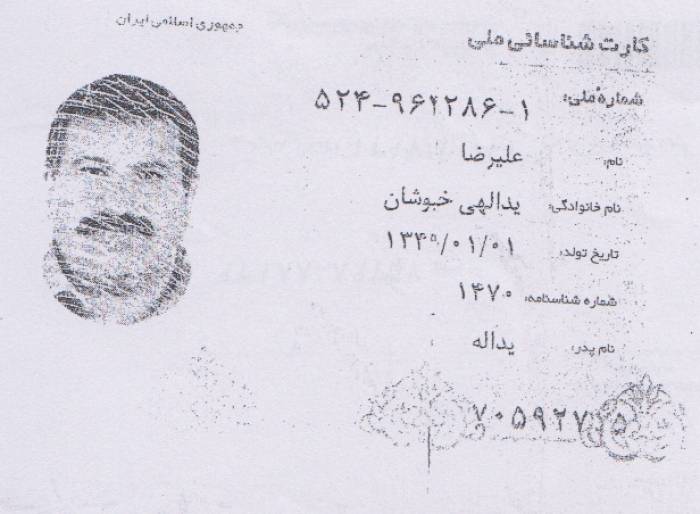 جمهوری اسلامی ایران
کارت شناسائی ملی
شماره ملی: ۵۲۴-۹۶۱۲۸۶-۱
نام: علیرضا
نام خانوادگی: یدالهی خبوشان
تاریخ تولد: ۱۳۴۹/۰۱/۰۱
شماره شناسنامه: ۱۴۷۰
نام پدر: یداله